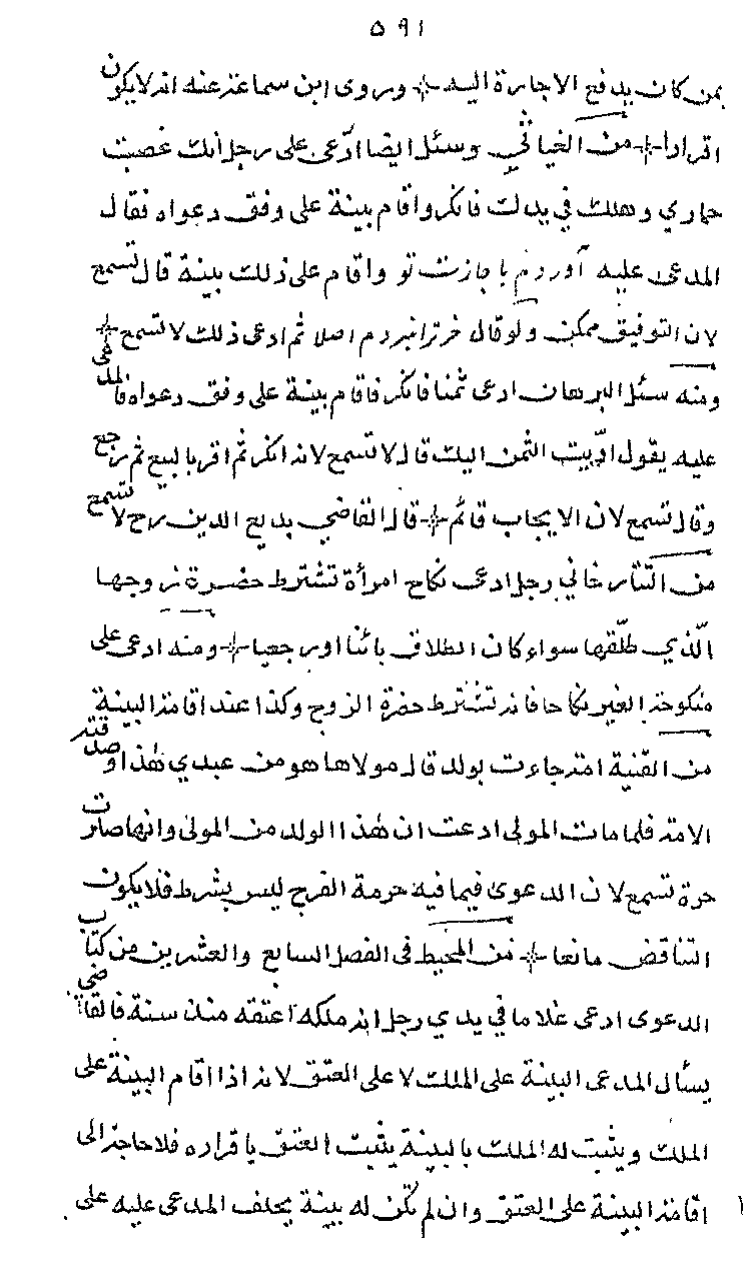 ٥٩١
بمن كان يدفع الاجارة اليه وروى ابن سماعة عنه انه لا يكون
اقرارا من الغياثي وسئل ايضا ادّعى على رجل انك غصبت
حماري وهلك في يدك فانكر واقام بينة على وفق دعواه فقال
المدعى عليه آوردم باجازت تو واقام على ذلك بينة قال تسمع
لان التوفيق ممكن ولو قال خر ترا نبردم اصلا ثم ادعى ذلك لا تسمع
ومنه سئل البرهان ادعى ثمنا فانكر فاقام بينة على وفق دعواه فالمدعى
عليه يقول ادّيت الثمن اليك قال لا تسمع لانه انكر ثم اقر بالبيع ثم رجع
وقال تسمع لان الايجاب قائم قال القاضي بديع الدين رح لا تسمع
من التتارخاني رجل ادعى نكاح امرأة تشترط حضرة زوجها
الّذي طلّقها سواء كان الطلاق بائنا او رجعيا ومنه ادعى على
منكوحة الغير نكاحا فانه تشترط حضرة الزوج وكذا عند اقامة البينة
من القنية امة جاءت بولد قال مولاها هو من عبدي هٰذا وصدقته
الامة فلما مات المولى ادعت ان هٰذا الولد من المولى وانها صارت
حرة تسمع لان الدعوى فيما فيه حرمة الفرج ليس بشرط فلا يكون
التناقض مانعا من المحيط فى الفصل السابع والعشرين من كتاب
الدعوى ادعى غلاما في يدي رجل انه ملكه اعتقه منذ سنة فالقاضي
يسأل المدعى البينة على الملك لا على العتق لانه اذا اقام البينة على
الملك ويثبت له الملك بالبينة يثبت العتق باقراره فلا حاجة الى
اقامة البينة على العتق وان لم تكن له بينة يحلف المدعى عليه على